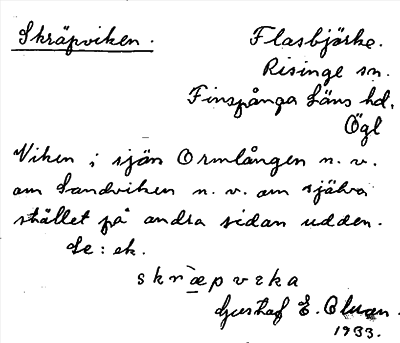 Skräpviken.
Flasbjörke.
Risinge sn.
Finspånga Läns hd.
Ögl
Viken i sjön Ormlången n. v.
om Sandviken n. v. om själva
stället på andra sidan udden.
Se: ek.
skræpvɩka
Gustaf E. Olsson.
1933.